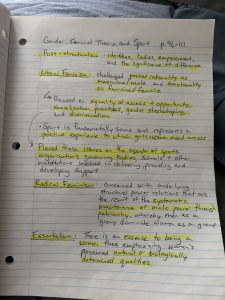 Gender, Feminist Theory, and Sport p. 96-111
- Post-structuralism: identities, bodies, empowerment,
and the significance of difference
Liberal Feminism: challenged posited rationality as
masculine/male and emotionality
as feminine/female
↳ Focused on equality of access + opportunity,
socialization practices, gender stereotyping
and discrimination
- Sport is fundamentally sound and represents a
positive experience to which girls + women need access
Placed these issues on the agenda of sports
organization's governing bodies, schools + other
institutions involved in delivering, providing, and
developing support.
Radical Feminism: Concerned with underlying
structural power relations that are
the result of the systematic
maintenance of male power through
patriarchy, whereby men as a
group dominate women as a group
Essentialism: There is an essence to being a
woman thus emphasizing women's
perceived natural or biologically
determined qualities.